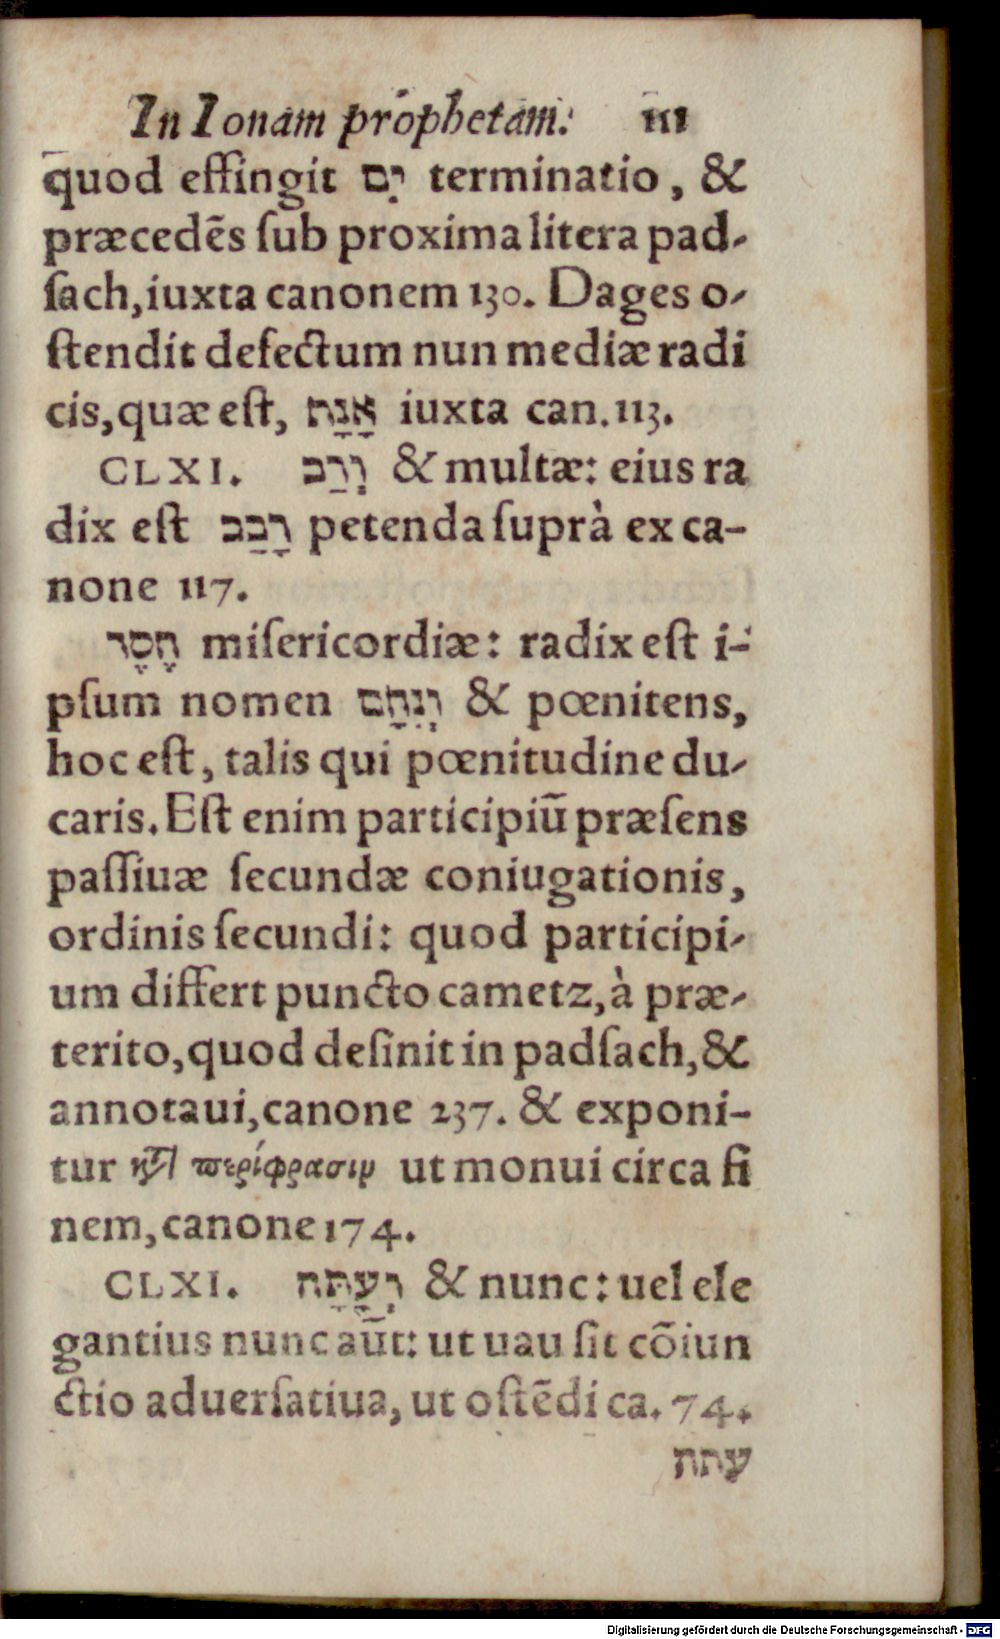 In Ionam prophetam. 111
quod effingit יָם terminatio, &
præcedẽs ſub proxima litera pad-
ſach, iuxta canonem 130. Dages o-
ſtendit defectum nun mediæ radi
cis, quæ eſt, אָנַח iuxta can. 113.
CLXI. וְרַב & multæ: eius ra
dix eſt רָבַב petenda ſuprà ex ca-
none 117.
חֶסֶד miſericordiæ: radix eſt i-
pſum nomen וְנִחָם & pœnitens,
hoc eſt, talis qui pœnitudine du-
caris. Eſt enim participiũ præſens
paſſiuæ ſecundæ coniugationis,
ordinis ſecundi: quod participi-
um differt puncto cametz, à præ-
terito, quod deſinit in padſach, &
annotaui, canone 237. & exponi-
tur κτ̃ περίφρασιν ut monui circa fi
nem, canone 174.
CLXI. וְעַתָּה & nunc: uel ele
gantius nunc aũt: ut uau ſit cõiun
ctio aduerſatiua, ut oſtẽdi ca. 74.
עתה
Digitalisierung gefördert durch die Deutsche Forschungsgemeinschaft - DFG